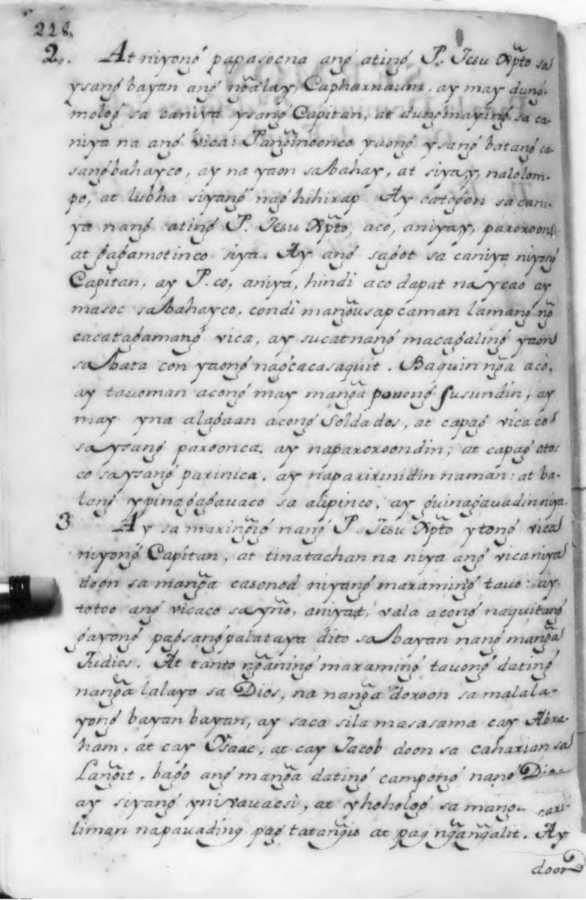 228.
2. At niyong̃ papasocna ang̃ ating̃ P. Jesu Xp̃to sa
ysang̃ bayan ang̃ ng̃alay Capharnaum, ay may dung̃-
molog̃ sa caniya ysang̃ Capitan, at dung̃maying̃ sa ca-
niya na ang̃ vica: Pang̃inoonco yaong̃ ysang̃ batang̃ ca-
sang̃bahayco, ay na yaon sa bahay, at siyay, nalolom-
po, at lubha siyang̃ nag̃ hihirap. Ay sag̃ot sa cani-
ya nang̃ ating̃ P. Jesu Xp̃to, aco, aniyay, paroroon
at g̃ag̃amotinco siya. Ay ang̃ sag̃ot sa caniya niyong̃
Capitan, ay P. co, aniya, hindi aco dapat na ycao ay
masoc sa bahayco, condi mang̃usap caman lamang̃ ng̃
cacatag̃amang̃ vica, ay sucat nang̃ macag̃aling̃ yaon
sa bata con yaong̃ nag̃cacasaquit. Baquin ng̃a aco,
ay tauoman acong̃ may mang̃a ponong̃ susundin, ay
may yna alag̃aan acong̃ soldados, at capag̃ vica co
sa ysang̃ paroonca, ay naparoroondin; at capag̃ ota
co sa ysang̃ parinica, ay naparirinidin naman: at ba-
lang̃ ypinag̃ag̃auaco sa alipinco, ay g̃uinag̃auadin niya.
3 Ay sa maring̃ig̃ nang̃ P. Jesu Xp̃to ytong̃ vica
niyong̃ Capitan, at tinatachan na niya ang̃ vicaniya
doon sa mang̃a casonod niyang̃ maraming̃ tauo: ay
totoo ang̃ vicaco sa ynio, aniya, vala acong̃ naquitang̃
g̃ayong̃ pag̃sang̃palataya dito sa bayan nang̃ mang̃a
Judios. At tanto ng̃aning̃ maraming̃ tauong̃ dating̃
nang̃a lalayo sa Dios, na nang̃a doroon sa malala-
yong̃ bayan bayan, ay saca sila masasama cay Abra-
ham, at cay Ysaac, at cay Jacob doon sa caharian sa
Lang̃it, bag̃o ang̃ mang̃a dating̃ campong̃ nang̃ Dios
ay siyang̃ ynivavacsi, at yhoholog̃ sa mang̃a
liman napauading pag̃ tatang̃is at pag ng̃ang̃alit. Ay
doon